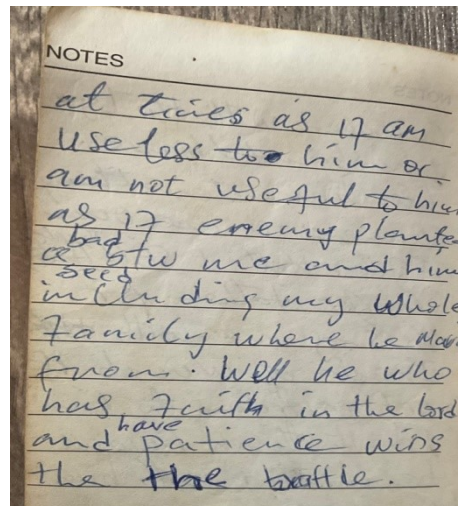 NOTES
at times as if am
useless to him or
am not useful to him
as if enemy plante
bad
a btw me and him
seed
including my whole
family where he
from. Well he who
has faith in the lord
have
and patience wins
the the battle.